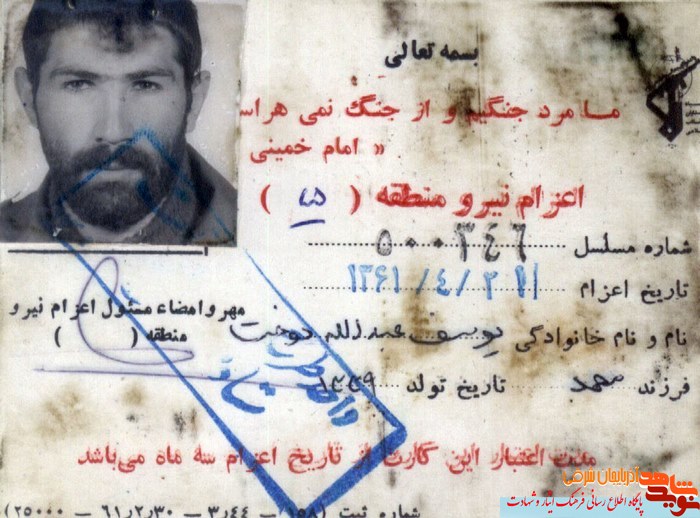 بسمه تعالی
ما مرد جنگیم و از جنگ نمی هراس
« امام خمینی
اعزام نیرو منطقه ( ۵ )
شماره مسلسل ۵۰۰۳۴۶
تاریخ اعزام ۱۳۶۱/۴/۲۱
نام و نام خانوادگی یوسف عبدالله دوخت
فرزند محمد تاریخ تولد ۱۳۳۹
مهر و امضاء مسئول اعزام نیرو
منطقه ( )
مدت اعتبار این کارت از تاریخ اعزام سه ماه می‌باشد
شماره ثبت (۱۵۸) ۳٫۴۴ــ۶۱٫۲٫۳۰ (۲۵۰۰۰
نوید شاهد آذربایجان شرقی
پایگاه اطلاع رسانی فرهنگ ایثار و شهادت